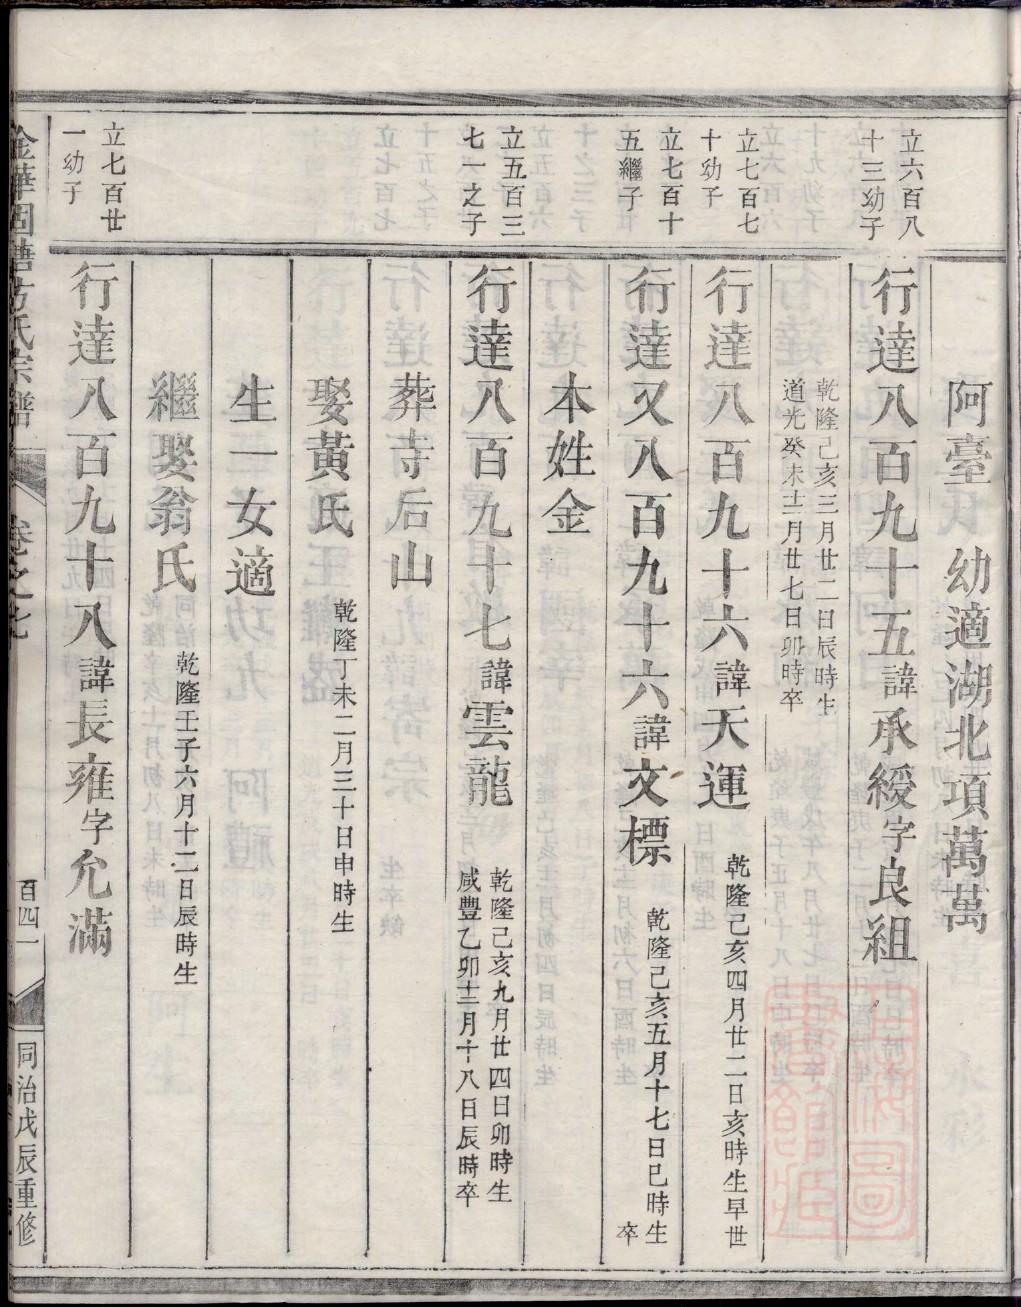 阿臺 幼適湖北項萬萬
立六百八
十三幼子
行達八百九十五諱承綬字良組
乾隆己亥三月廿二日辰時生
道光癸未十二月廿七日卯時卒
立七百七
十幼子
行達八百九十六諱天運 乾隆己亥四月廿二日亥時生早世
立七百十
五繼子
行達又八百九十六諱文標 乾隆己亥五月十七日巳時生
卒
本姓金
立五百三
七一之子
行達八百九十七諱雲龍 乾隆己亥九月廿四日卯時生
咸豐乙卯十二月十八日辰時卒
葬寺后山
娶黃氏 乾隆丁未二月三十日申時生
生一女適
繼娶翁氏 乾隆壬子六月十二日辰時生
立七百廿
一幼子
行達八百九十八諱長雍字允滿
金華固塘方氏宗譜 卷之九 百四一 同治戊辰重修